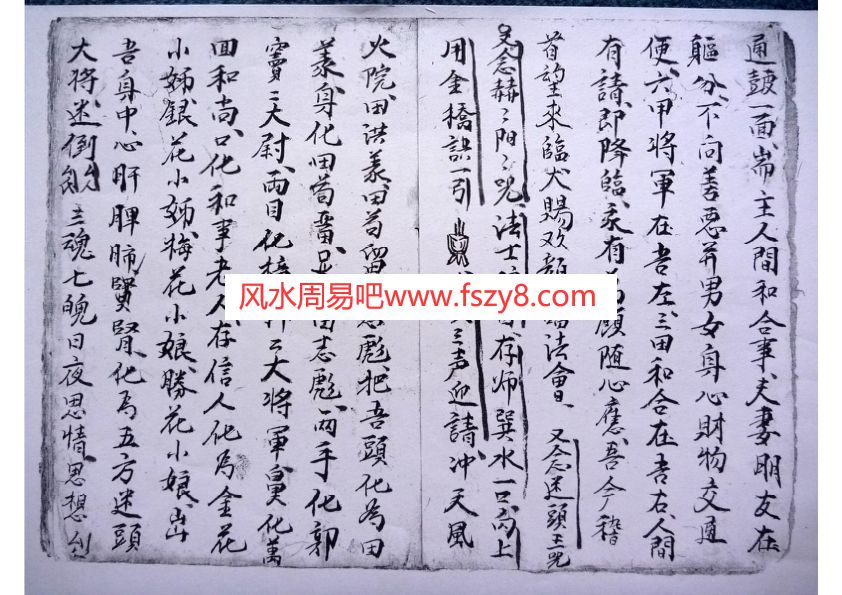 通鼓一面崙主人間和合事夫妻朋友在
軀分不向善惡并男女身心財物交通
便六甲将軍在吾左三田和合在吾右人間
有請即降臨家有所願随心應吾今稽
首望來臨犬賜欢顔法會 又念迷頭王咒
又念赫〻阳〻咒法士存师巽水一口向上
用金橋訣一引三声迎請冲天風
火院田洪義田苟留彪把吾頭化為田
義身化田苟畨足田志彪两手化郭
竇二大尉两目化二大将軍鼻化萬
回和尚口化和事老人存信人化為金花
小姊銀花小姊梅花小娘勝花小娘
吾身中心肝脾肺腎化為五方迷頭
大将迷倒三魂七魄日夜思情思想
风水周易吧www.fszy8.com